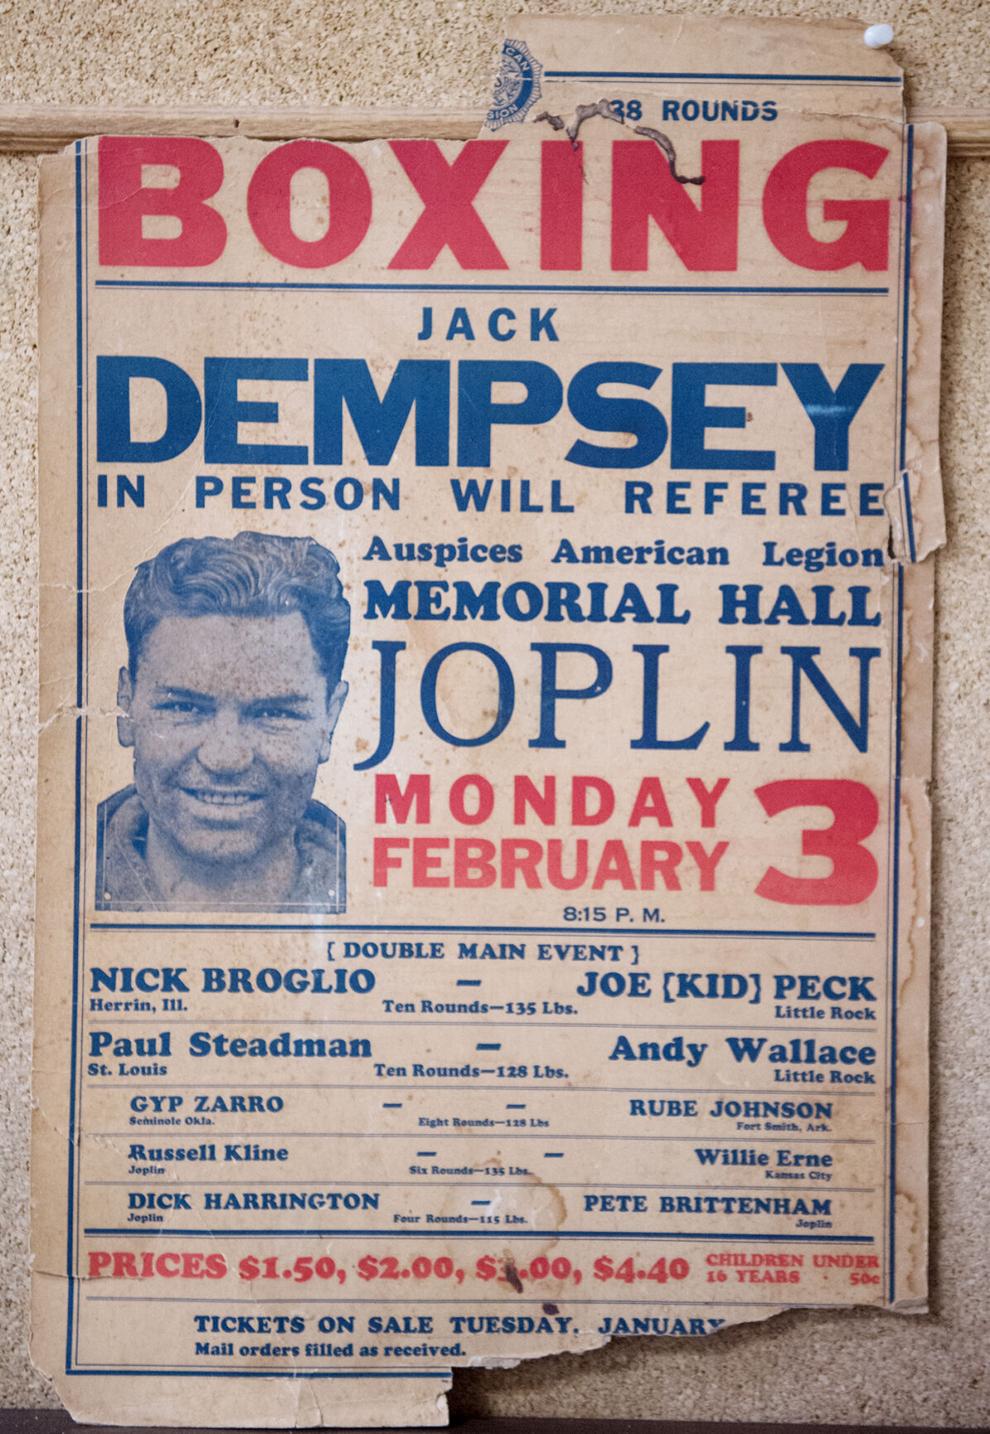 38 ROUNDS
BOXING
JACK
DEMPSEY
IN PERSON WILL REFEREE
Auspices American Legion
MEMORIAL HALL
JOPLIN
MONDAY
FEBRUARY 3
8:15 P. M.
[ DOUBLE MAIN EVENT ]
NICK BROGLIO — JOE [KID] PECK
Herrin, Ill. Ten Rounds—135 Lbs. Little Rock
Paul Steadman — Andy Wallace
St. Louis Ten Rounds—128 Lbs. Little Rock
GYP ZARRO — — RUBE JOHNSON
Seminole Okla. Eight Rounds—128 Lbs Fort Smith, Ark.
Russell Kline — — Willie Erne
Joplin Six Rounds—135 Lbs. Kansas City
DICK HARRINGTON — PETE BRITTENHAM
Joplin Four Rounds—115 Lbs. Joplin
PRICES $1.50, $2.00, $3.00, $4.40 CHILDREN UNDER
16 YEARS · 50c
TICKETS ON SALE TUESDAY, JANUARY
Mail orders filled as received.